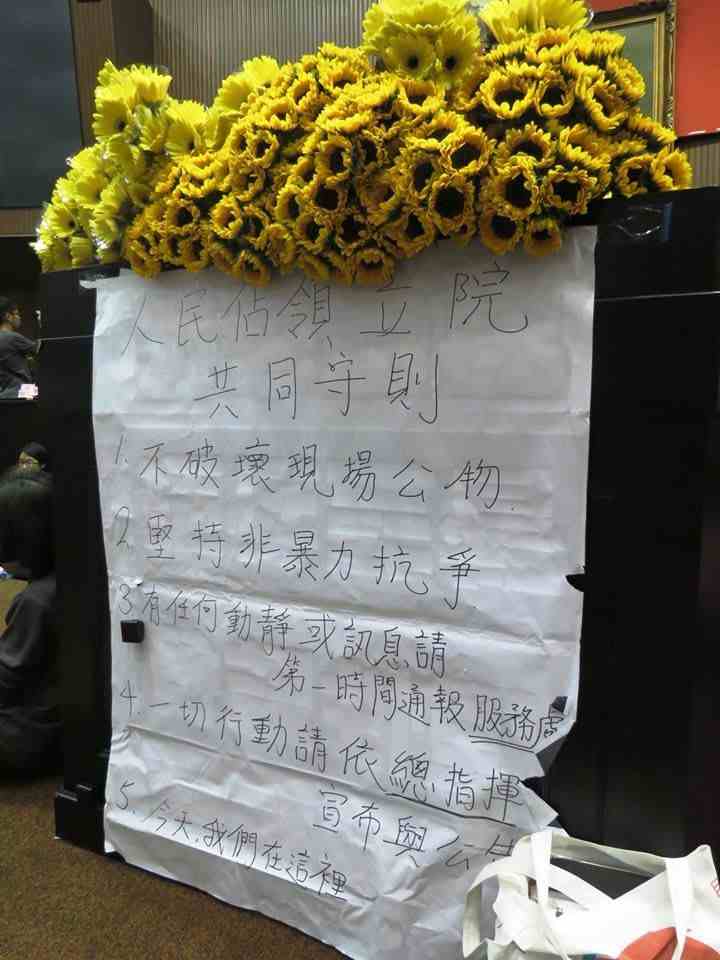 人民佔領立院
共同守則
1. 不破壞現場公物.
2. 堅持非暴力抗爭
3. 有任何動靜或訊息請
第一時間通報服務處
4. 一切行動請依總指揮
宣布與公告
5. 今天,我們在這裡